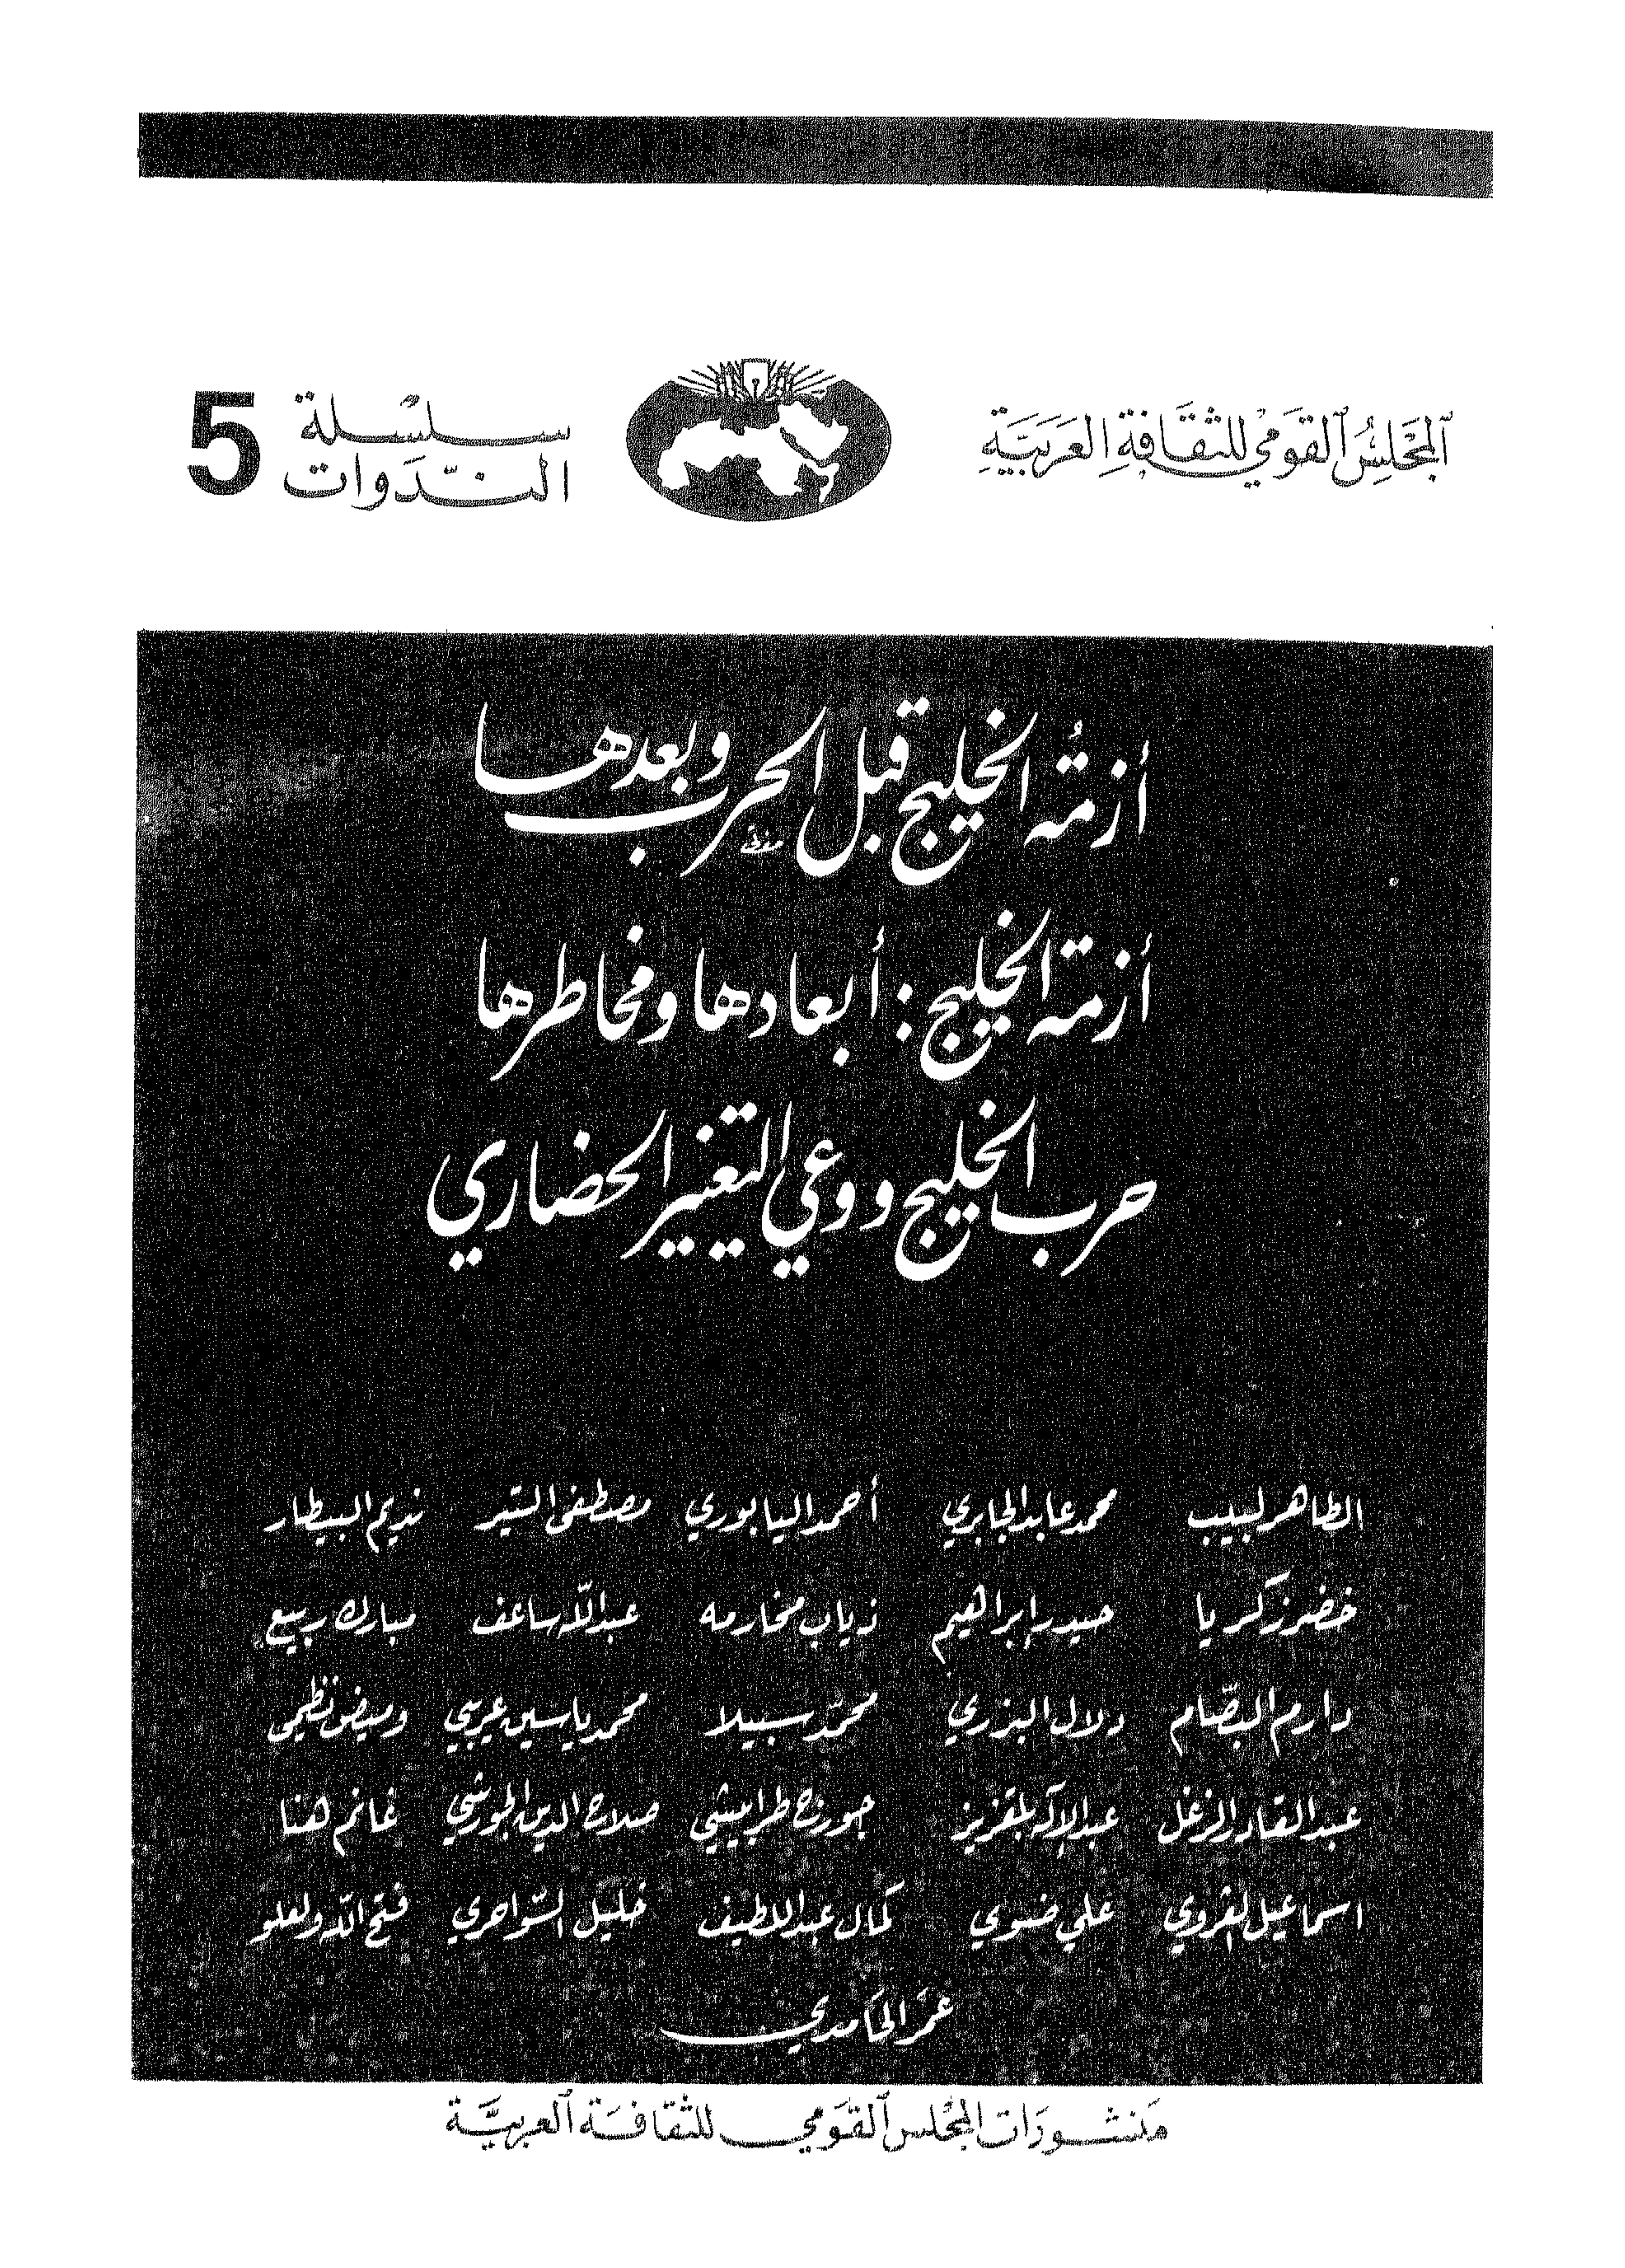 المجلس القومي للثقافة العربية
سلسلة
الندوات
5
أزمة الخليج قبل الحرب وبعدها
أزمة الخليج : أبعادها ومخاطرها
حرب الخليج ووعي التغيير الحضاري
الطاهر لبيب محمد عابد الجابري أحمد اليابوري مصطفى التير نديم البيطار
خضر زكريا حيدر إبراهيم ذياب مخادمه عبد الله ساعف مبارك ربيع
دارم البصّام دلال البزري محمّد سبيلا محمد ياسين عريبي وميض نظمي
عبد القادر الزغل عبد الإله بلقزيز جورج طرابيشي صلاح الدين الجورشي غانم هنا
اسماعيل الغزاوي علي ضوي كمال عبد اللطيف خليل السّواحري فتح الله ولعلو
عمر الحامدي
منشورات المجلس القومي للثقافة العربيّة